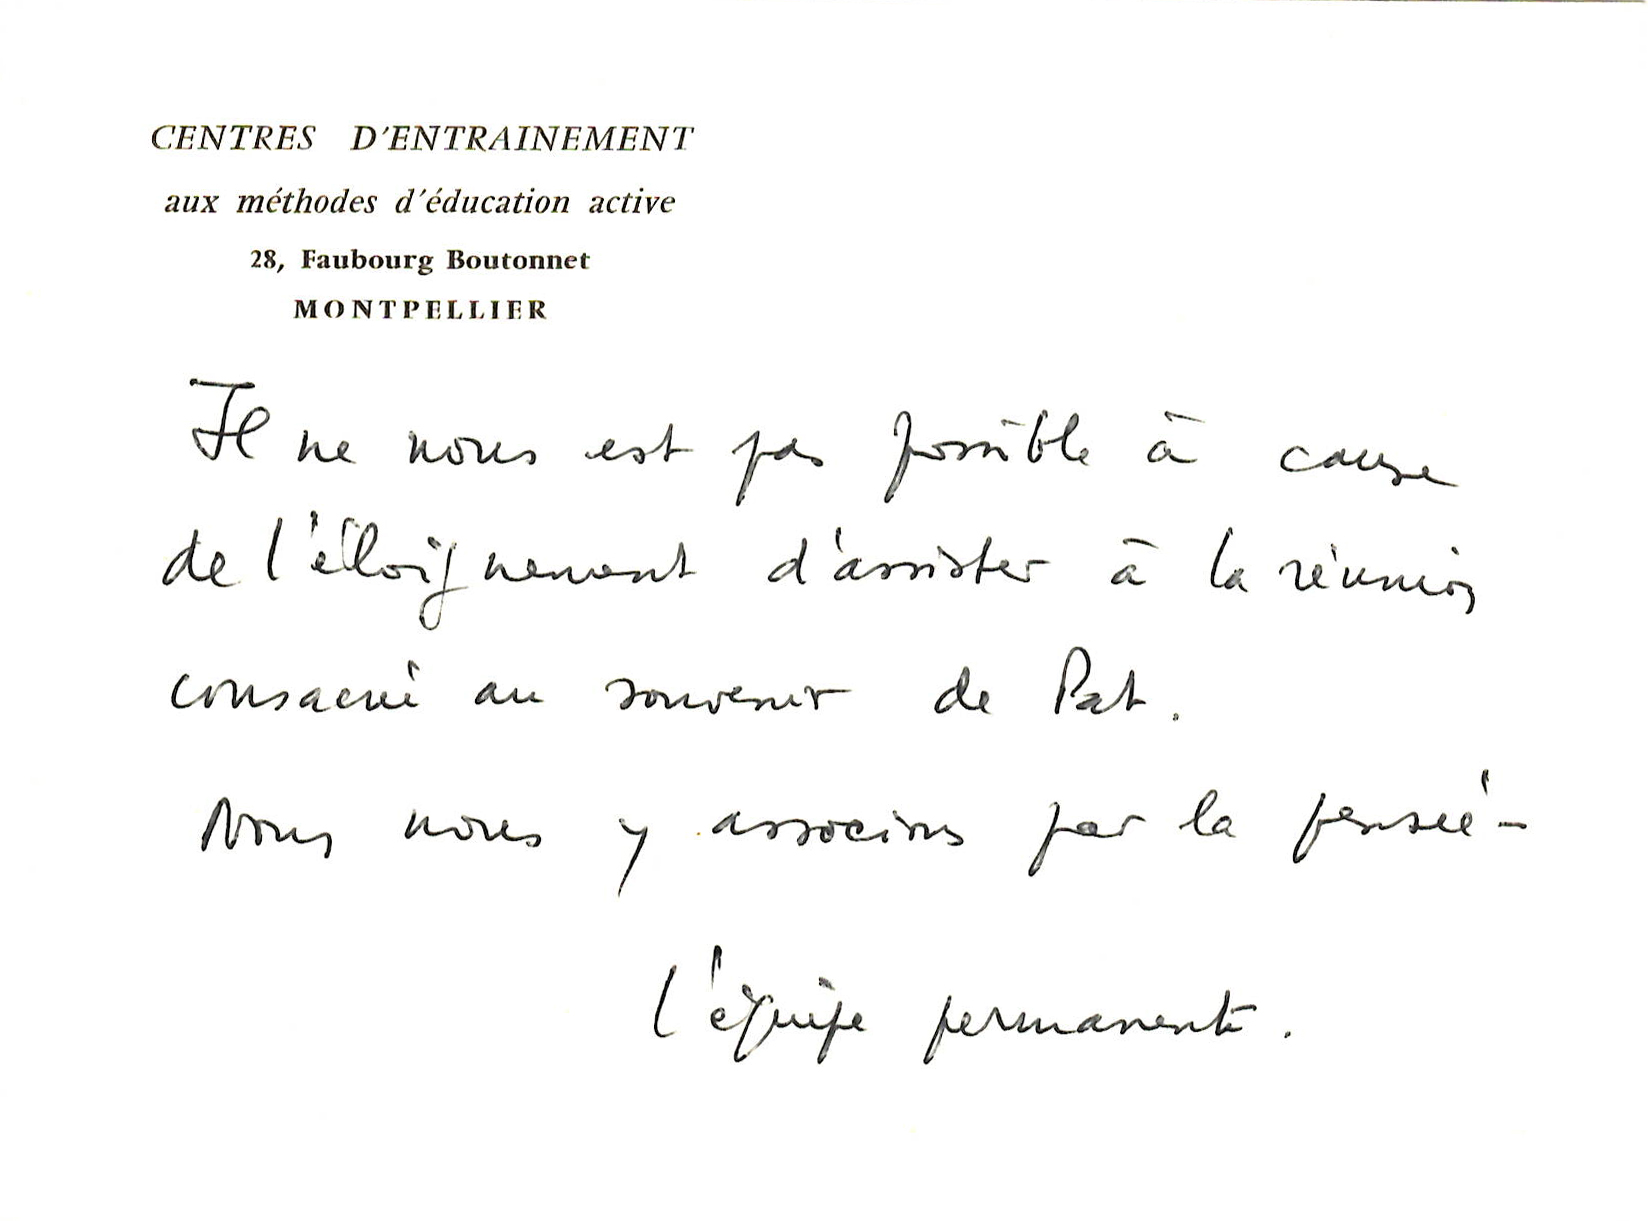 CENTRES D'ENTRAINEMENT
aux méthodes d'éducation active
28, Faubourg Boutonnet
MONTPELLIER
Il ne nous est pas possible à cause
de l'éloignement d'assister à la réunion
consacré au souvenir de Pat.
Nous nous y associons par la pensée -
l'équipe permanente.